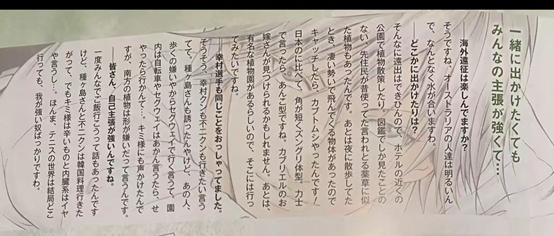 一緒に出かけたくても
みんなの主張が強くて…
海外遠征は楽しんでますか？
そうですね。オーストラリアの人達は明るいん
で、なんとなく水が合いますわ。
どこかに出かけたりは？
そんなに遠出はできひんので、ホテルの近くの
公園で植物散策したり。図鑑でしか見たことの
ない、先住民が昔使ってた言われとる薬草に似
た植物もあったんです。あとは夜に散歩してた
とき、凄い勢いで飛んでくる物体があったので
キャッチしたら、カブトムシやったんです！
日本のに比べて、角が短くズングリ体型。力士
で言ったら、あんこ型ですね。カブリエルのお
嫁さんが見つけられるかもしれません。あとは、
有名な植物園があるらしいので、そこには行っ
てみたいですね。
幸村選手も同じことをおっしゃってました。
そうそう、幸村クンもオニクンも行きたい言う
てて。種ヶ島さんも誘ったんやけど、あの人、
歩くの嫌いやからセグウェイで行く言うて。園
内は自転車やセグウェイはあかん言うたら、せ
やったら行かんて…。キミ様にも声かけたんで
すが、南方の植物は形が嫌いだって言うんです。
皆さん、自己主張が強いんですね。
一度みんなでご飯行こうって話もあったんです
けど、種ヶ島さんとオニクンは韓国料理行きた
がって。でもキミ様は辛いものと内臓系はイヤ
や言うし…。ほんま、テニスの世界は結局どこ
行っても、我が強い奴ばっかりですわ。